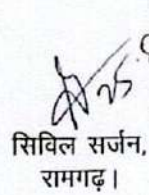 सिविल सर्जन,
रामगढ़।